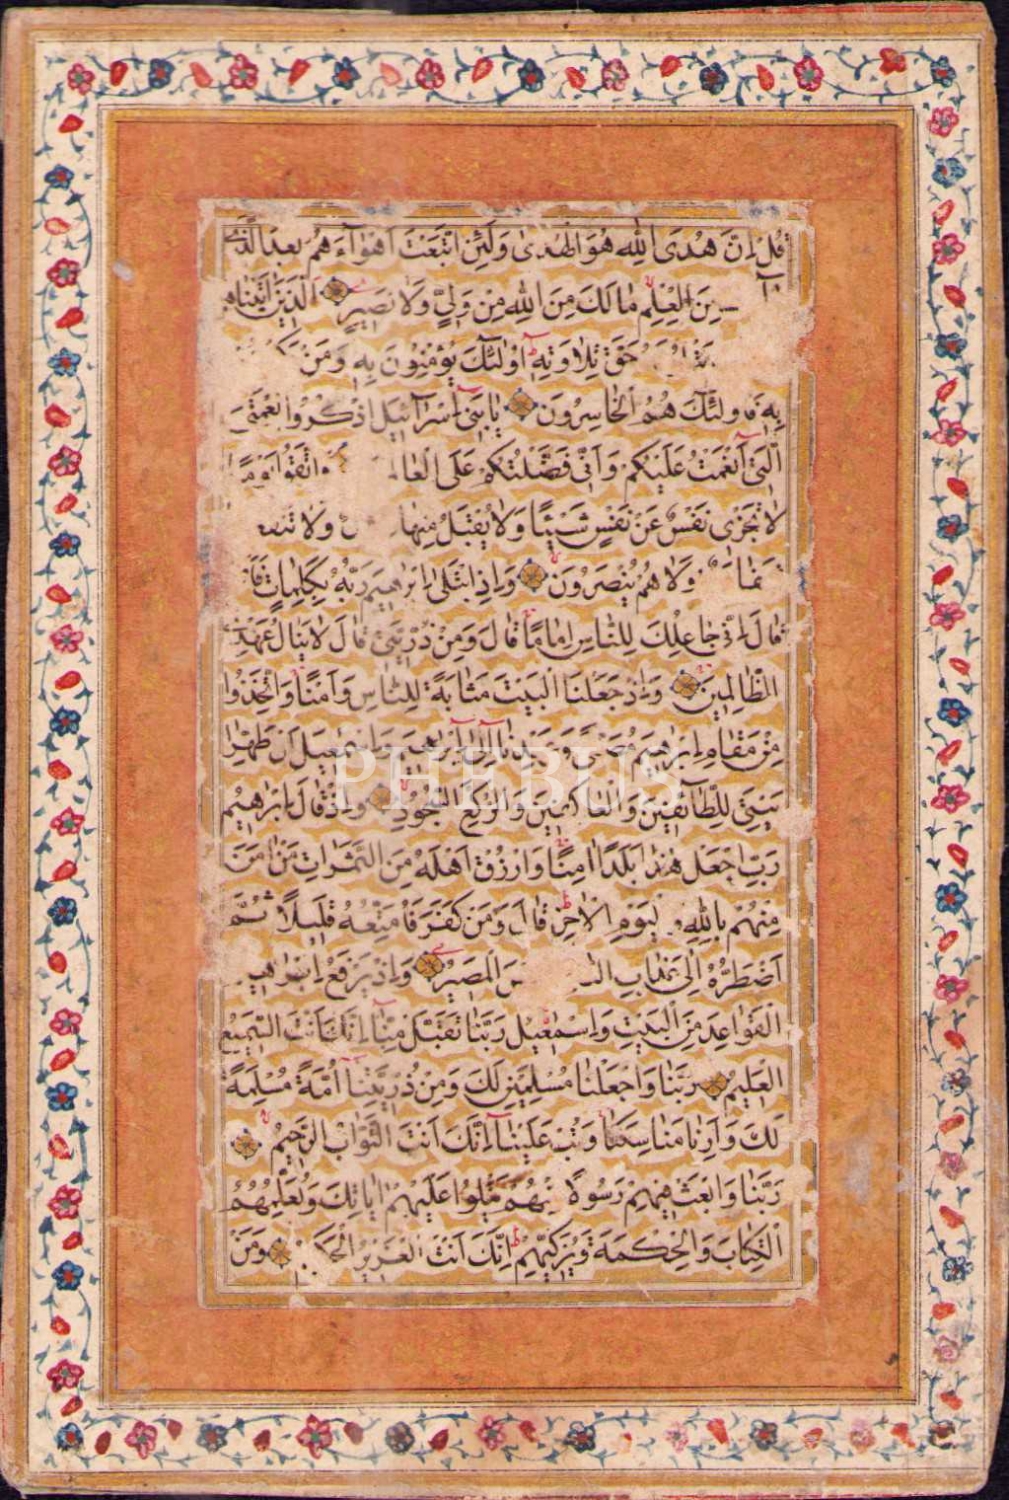 قُلْ اِنَّ هُدَى اللّٰهِ هُوَ الْهُدٰى وَلَئِنِ اتَّبَعْتَ اَهْوَاۤءَهُمْ بَعْدَ الَّذٖى
جَاۤ
مِنَ الْعِلْمِ مَا لَكَ مِنَ اللّٰهِ مِنْ وَلِىٍّ وَلَا نَصٖيرٍ اَلَّذٖينَ اٰتَيْنَاهُمُ
حَقَّ تِلَاوَتِهٖ اُولٰۤئِكَ يُؤْمِنُونَ بِهٖ وَمَنْ
بِهٖ فَاُولٰۤئِكَ هُمُ الْخَاسِرُونَ يَا بَنٖىۤ اِسْرَاۤئٖيلَ اذْكُرُوا نِعْمَتِىَ
الَّتٖىۤ اَنْعَمْتُ عَلَيْكُمْ وَاَنّٖى فَضَّلْتُكُمْ عَلَى الْعَالَ وَاتَّقُوا يَوْمًا
لَا تَجْزٖى نَفْسٌ عَنْ نَفْسٍ شَيْئًا وَلَا يُقْبَلُ مِنْهَا وَلَا تَنْفَعُ
وَلَا هُمْ يُنْصَرُونَ وَاِذِ ابْتَلٰىۤ اِبْرٰهٖيمَ رَبُّهُ بِكَلِمَاتٍ فَاَ
قَالَ اِنّٖى جَاعِلُكَ لِلنَّاسِ اِمَامًا قَالَ وَمِنْ ذُرِّيَّتٖى قَالَ لَا يَنَالُ عَهْدِى
الظَّالِمٖينَ وَاِذْ جَعَلْنَا الْبَيْتَ مَثَابَةً لِلنَّاسِ وَاَمْنًا وَاتَّخِذُوا
مِنْ مَقَامِ اِبْرٰهٖيمَ مُصَلًّى وَعَهِدْنَاۤ اِلٰىۤ اِبْرٰهٖيمَ وَاِسْمٰعٖيلَ اَنْ طَهِّرَا
بَيْتِىَ لِلطَّاۤئِفٖينَ وَالْعَاكِفٖينَ وَالرُّكَّعِ السُّجُودِ وَاِذْ قَالَ اِبْرٰهٖيمُ
رَبِّ اجْعَلْ هٰذَا بَلَدًا اٰمِنًا وَارْزُقْ اَهْلَهُ مِنَ الثَّمَرَاتِ مَنْ اٰمَنَ
مِنْهُمْ بِاللّٰهِ وَالْيَوْمِ الْاٰخِرِ قَالَ وَمَنْ كَفَرَ فَاُمَتِّعُهُ قَلٖيلًا ثُمَّ
اَضْطَرُّهُۤ اِلٰى عَذَابِ الن سَ الْمَصٖيرُ وَاِذْ يَرْفَعُ اِبْرٰهٖيمُ
الْقَوَاعِدَ مِنَ الْبَيْتِ وَاِسْمٰعٖيلُ رَبَّنَا تَقَبَّلْ مِنَّاۤ اِنَّكَ اَنْتَ السَّمٖيعُ
الْعَلٖيمُ رَبَّنَا وَاجْعَلْنَا مُسْلِمَيْنِ لَكَ وَمِنْ ذُرِّيَّتِنَاۤ اُمَّةً مُسْلِمَةً
لَكَ وَاَرِنَا مَنَاسِكَنَا وَتُبْ عَلَيْنَاۤ اِنَّكَ اَنْتَ التَّوَّابُ الرَّحٖيمُ
رَبَّنَا وَابْعَثْ فٖيهِمْ رَسُولًا مِنْهُمْ يَتْلُوا عَلَيْهِمْ اٰيَاتِكَ وَيُعَلِّمُهُمُ
الْكِتَابَ وَالْحِكْمَةَ وَيُزَكّٖيهِمْ اِنَّكَ اَنْتَ الْعَزٖيزُ الْحَكٖيمُ وَمَنْ
PHEBUS